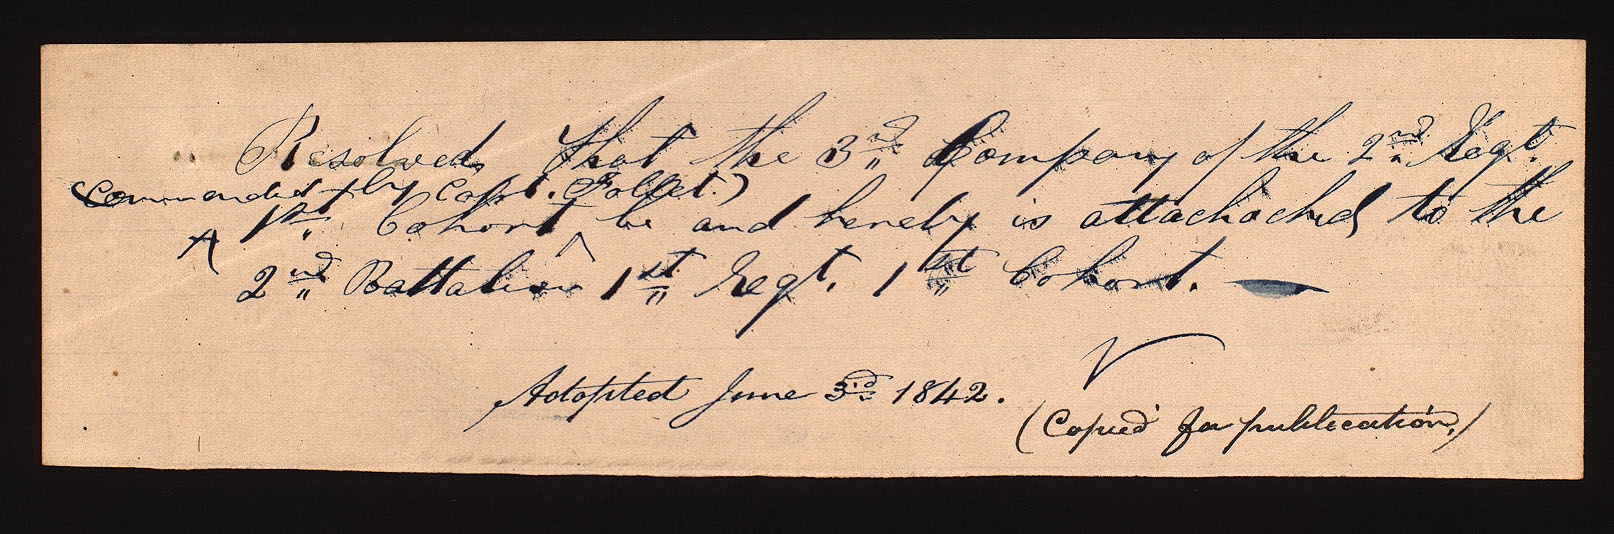 Resolved, That the 3rd Company of the 2nd Regt.
(commanded by Capt. Follet.)
^ 1st Cohort ^ be and hereby is attachached to the
2nd Battalion 1st Regt. 1st Cohort. —
Adopted June 3rd 1842.
(Copied for publication.)